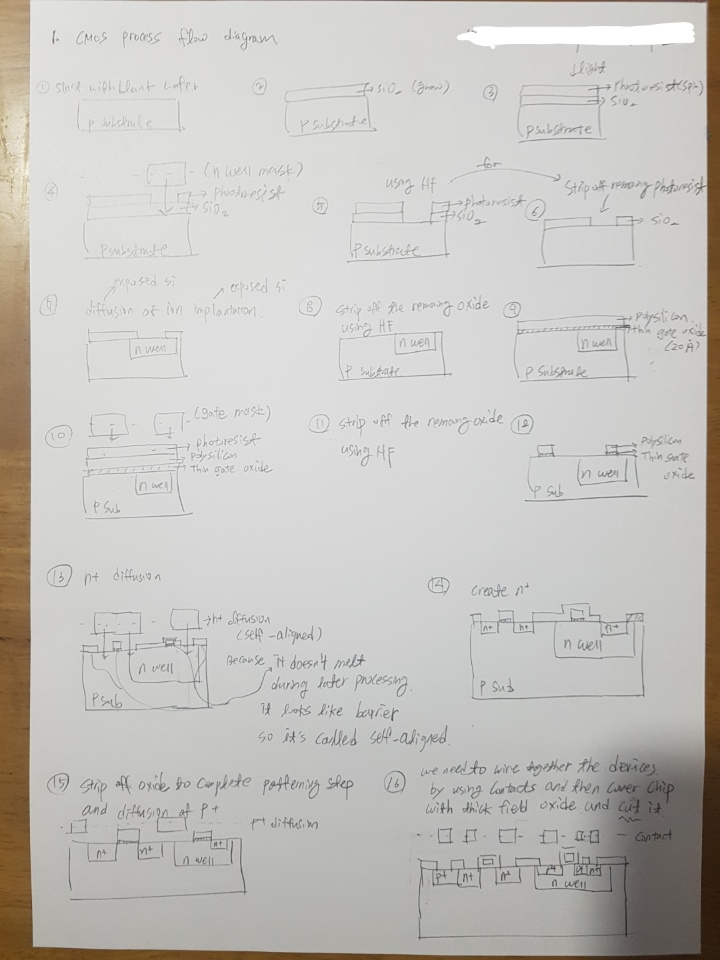 1. CMOS process flow diagram
① start with blank wafer
P substrate
②
SiO₂ (grow)
P substrate
③
↓light
photoresist(spin)
SiO₂
P substrate
④
(n well mask)
photoresist
SiO₂
P substrate
⑤
using HF
photoresist
SiO₂
P substrate
for
⑥
Strip off remang photoresist
SiO₂
⑦
exposed si
exposed si
diffusion of Ion implantation.
n well
P substrate
⑧ strip off the remang oxide
using HF
n well
P substrate
⑨
polysilicon.
thin gate oxide
(20Å)
n well
P substrate
⑩
(Gate mask)
photoresist
polysilicon
thin gate oxide
n well
P sub
⑪ strip off the remang oxide
using HF
⑫
polysilicon
Thin gate
oxide
n well
P sub
⑬ n+ diffusion
n+ diffusion
(self-aligned)
Because it doesn't melt
during later processing.
it looks like barrier
so it's called self-aligned.
n well
P sub
⑭
create n+
n+ n+ n+
n well
P sub
⑮ strip off oxide to complete patterning step
and diffusion of p+
p+ diffusion
n+ n+ n+
n well
⑯ we need to wire together the devices
by using contacts and then cover chip
with thick field oxide and cut it.
contact
p+ n+ n+ p+ p+ n+
n well